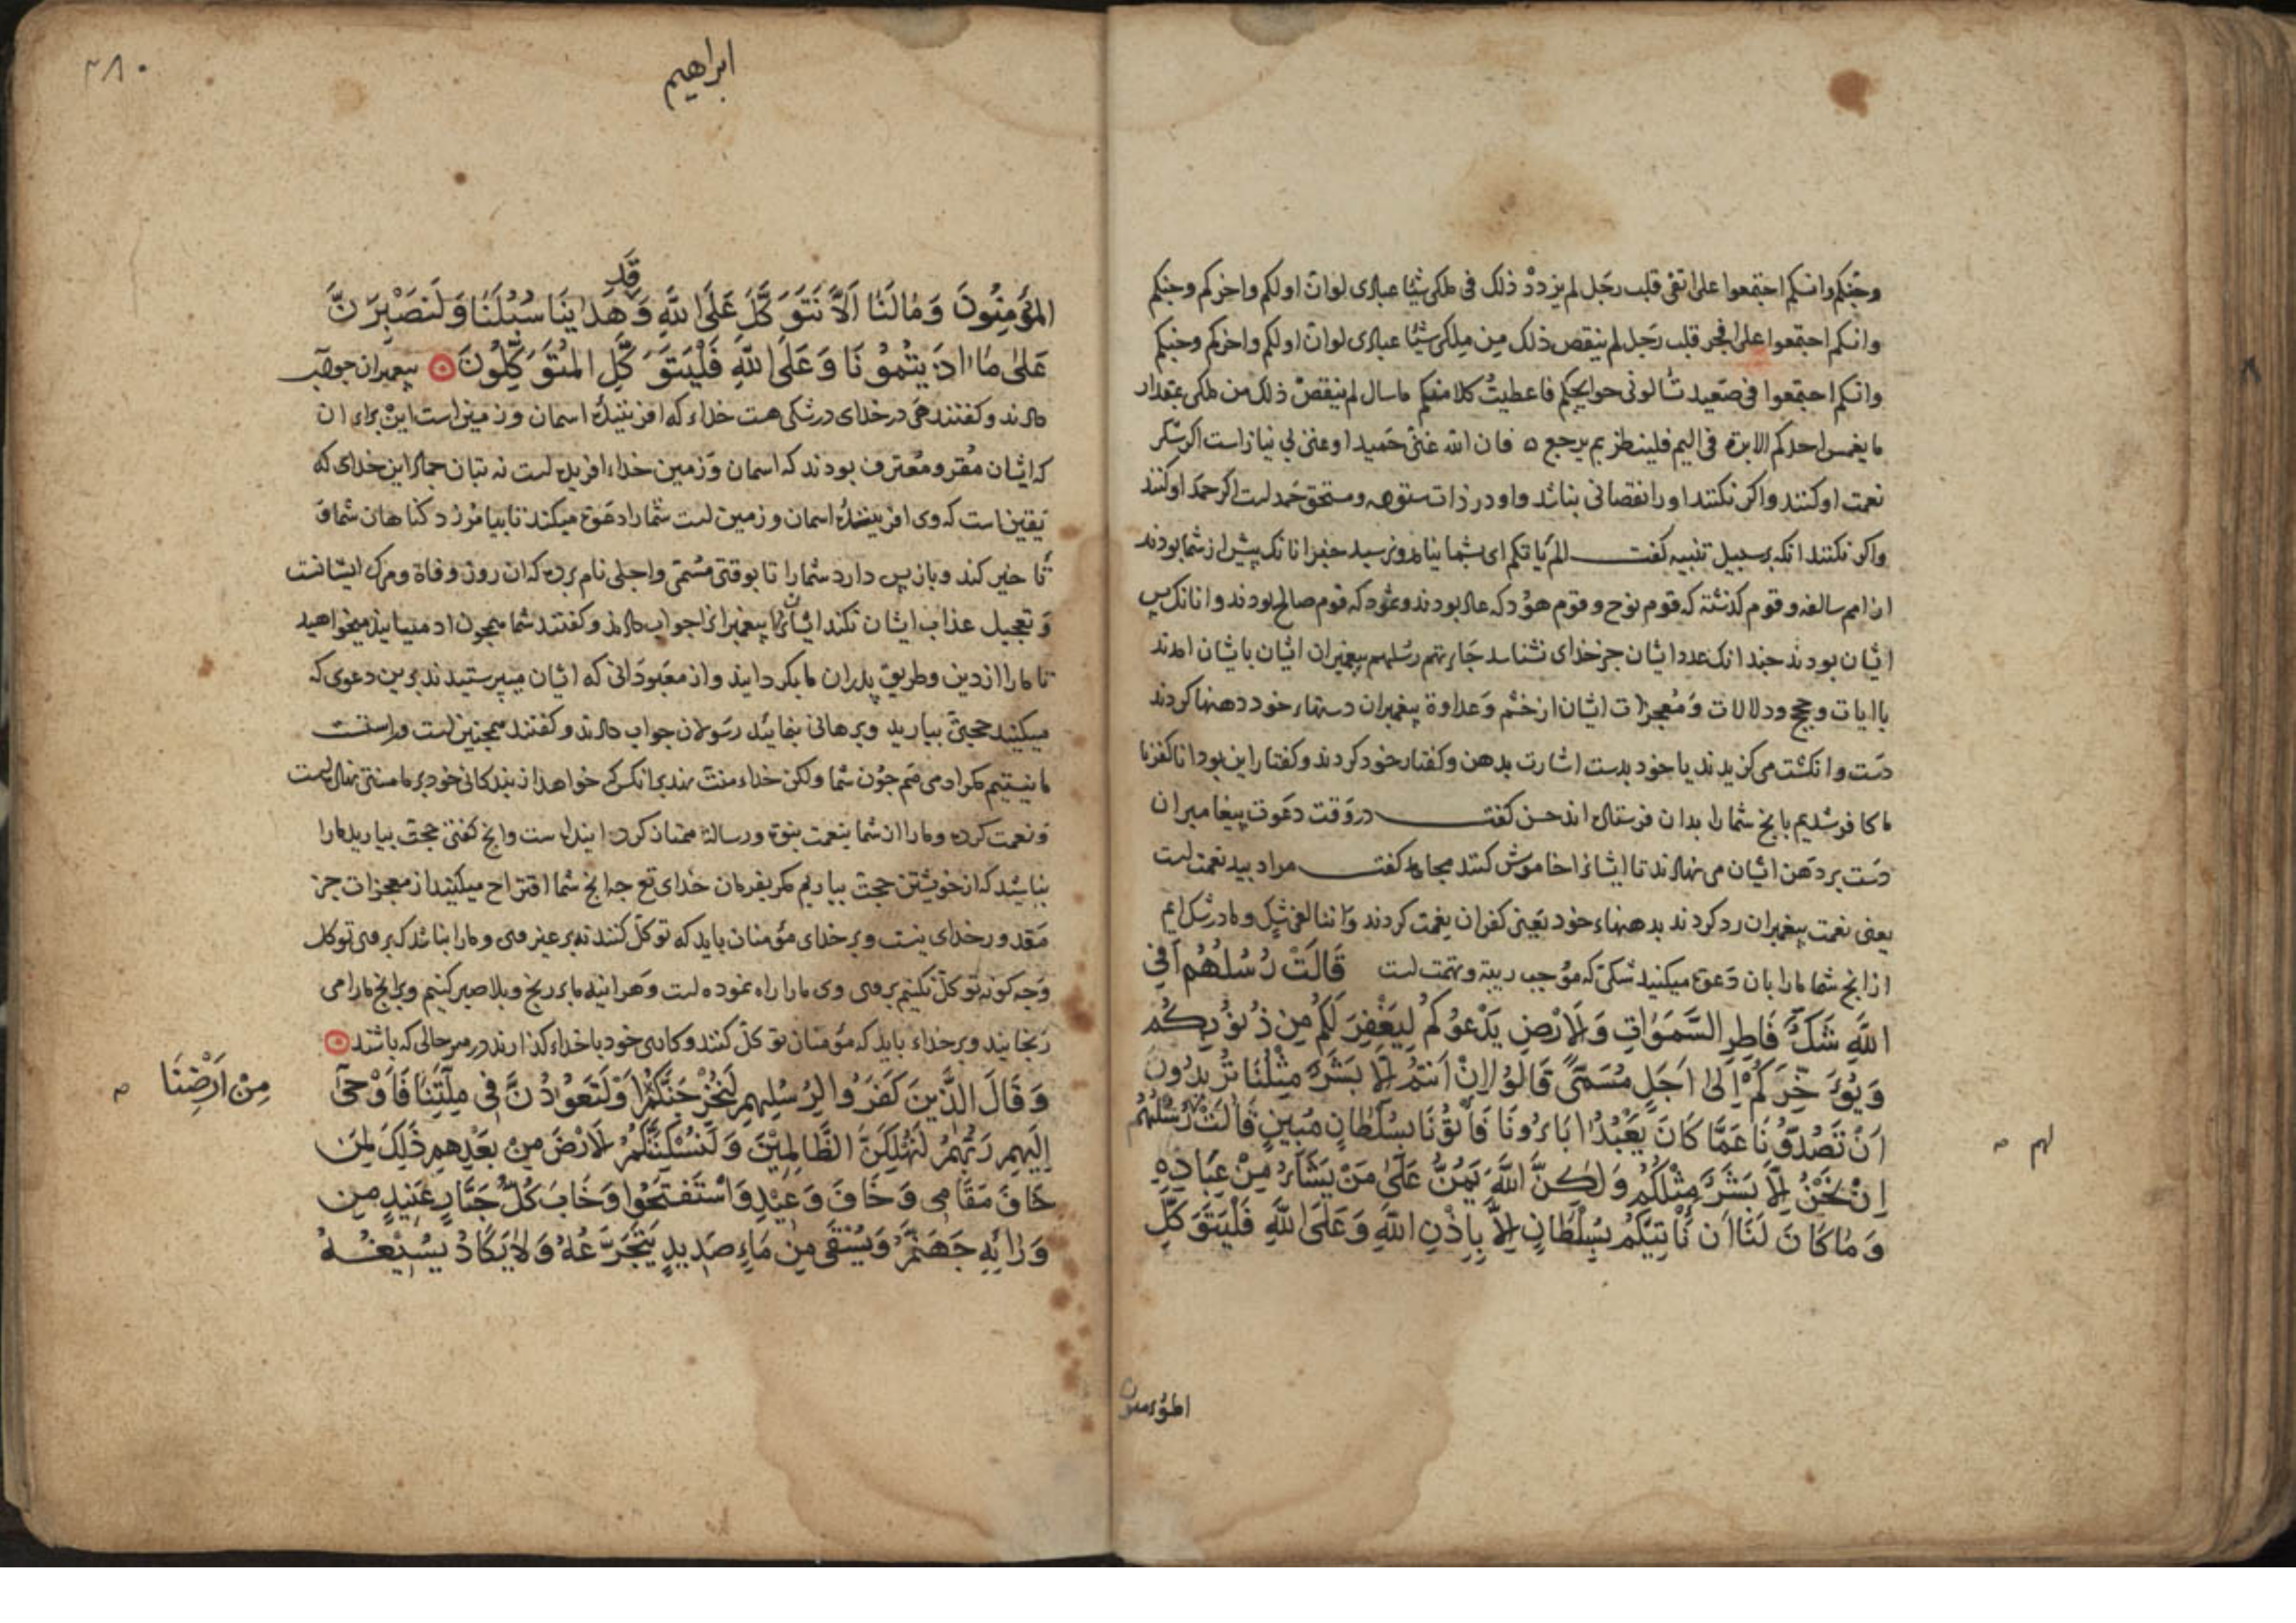 وجنکم وانسکم اجتمعوا علی اتقی قلب رجل لم یزدد ذلک فی ملکی شیئا عبادی لو ان اولکم واخرکم وجنکم
وانسکم اجتمعوا علی افجر قلب رجل لم ینقص ذلک من ملکی شیئا عبادی لو ان اولکم واخرکم وجنکم
وانسکم اجتمعوا فی صعید سالونی حوایجکم فاعطیت کلا منکم ما سال لم ینقص ذلک من ملکی بمقدار
ما یغمس احدکم الابرة فی الیم فلینظر بم یرجع ه فان الله غنی حمید او غنی بی نیاز است اکر شکر
نعمت او کنند واکر نکنند او را نقصانی نباشد واو در ذات ستوده ومستحق حمد است اکر حمد او کنند
واکر نکنند انکه بر سبیل تنبیه کفت الم یاتکم ای بشما نیامد ونرسید خبر انانک پیش از شما بودند
از امم سالفه وقوم کذشته که قوم نوح وقوم هود که عاد بودند وثمود که قوم صالح بودند وانانک پس
ایشان بودند چندانک عدد ایشان جز خدای نشناسد جاءتهم رسلهم پیغمبران ایشان بایشان امدند
با ایات وحجج ودلالات ومعجزات ایشان از خشم وعداوة پیغمبران دستهاء خود در دهنها کردند
دست وانکشت می کزیدند یا خود بدست اشارت بدهن وکفتار خود کردند وکفتار این بود انا کفرنا
ما کافر شدیم بانج شما را بدان فرستاده اند حسن کفت در وقت دعوت پیغامبران
دست بر دهن ایشان می نهادند تا ایشانرا خاموش کنند مجاهد کفت مراد بید نعمت است
یعنی نعمت پیغمبران رد کردند بدهنهاء خود یعنی کفران نعمت کردند واننا لفی شک وما در شک ایم
از انج شما ما را بان دعوة میکنید شکی که موجب ریبة وتهمت است قَالَتْ رُسُلُهُمْ اَفِي
اللَّهِ شَكٌّ فَاطِرِ السَّمَوَاتِ وَالْاَرْضِ يَدْعُوكُمْ لِيَغْفِرَ لَكُمْ مِنْ ذُنُوبِكُمْ
وَيُؤَخِّرَكُمْ اِلَىٰ اَجَلٍ مُسَمًّى قَالُوا اِنْ اَنْتُمْ اِلَّا بَشَرٌ مِثْلُنَا تُرِيدُونَ
اَنْ تَصُدُّونَا عَمَّا كَانَ يَعْبُدُ اٰبَاؤُنَا فَأْتُونَا بِسُلْطَانٍ مُبِينٍ قَالَتْ رُسُلُهُمْ
لهم
اِنْ نَحْنُ اِلَّا بَشَرٌ مِثْلُكُمْ وَلٰكِنَّ اللَّهَ يَمُنُّ عَلَىٰ مَنْ يَشَاءُ مِنْ عِبَادِهِ
وَمَا كَانَ لَنَا اَنْ نَأْتِيَكُمْ بِسُلْطَانٍ اِلَّا بِاِذْنِ اللَّهِ وَعَلَى اللَّهِ فَلْيَتَوَكَّلِ
المؤمنون
٣٨٠
ابراهیم
الْمُؤْمِنُونَ وَمَا لَنَا اَلَّا نَتَوَكَّلَ عَلَى اللَّهِ وَقَدْ هَدٰينَا سُبُلَنَا وَلَنَصْبِرَنَّ
عَلٰى مَا اٰذَيْتُمُونَا وَعَلَى اللَّهِ فَلْيَتَوَكَّلِ الْمُتَوَكِّلُونَ ه پیغمبران جواب
دادند وکفتند هی در خدای در شکی هست خداء که افریننده اسمان وزمین است این براء ان
که ایشان مقر ومعترف بودند که اسمان وزمین خداء افریده است نه بتان جماد این خدای که
یقین است که وی افریننده اسمان وزمین است شما را دعوة میکند تا بیامرزد کناهان شما و
تاخیر کند وباز پس دارد شما را تا بوقتی مسمی واجلی نام برده که ان روز وفاة ومرک ایشانست
وتعجیل عذاب ایشان نکند ایشان پیغمبرانرا جواب دادند وکفتند شما همچون ما ادمیانید میخواهید
تا ما را از دین وطریق پدران ما بکردانید واز معبودانی که ایشان میپرستیدند برین دعوی که
میکنید حجتی بیارید وبرهانی بنمایید رسولان جواب دادند وکفتند همچنین است وراست
ما نیستیم مکر ادمی هم چون شما ولکن خداء منت نهد بر انکس که خواهد از بندکانی خود بر ما منتی نهاده است
ونعمت کرده وما را از شما بنعمت نبوة ورسالة ممتاز کرده اینده است وانج کفتی حجت بیارید ما را
نباشد که از خویشتن حجت بیاریم مکر بفرمان خدای تع چه انج شما اقتراح میکنید از معجزات جز
مقدور خدای نیست وبر خدای مؤمنان باید که توکل کنند نه بر غیر وی وما را نباشد که بر وی توکل
وچه کونه توکل نکنیم بر وی وی ما را راه نموده است وهراینه ما بر رنج وبلا صبر کنیم وبر انج ما را می
رنجانید وبر خداء باید که مؤمنان توکل کنند وکارهای خود با خداء کذارند در هر حالی که باشند ه
وَقَالَ الَّذِينَ كَفَرُوا لِرُسُلِهِمْ لَنُخْرِجَنَّكُمْ اَوْ لَتَعُودُنَّ فِي مِلَّتِنَا فَاَوْحَىٰ
مِنْ اَرْضِنَا
اِلَيْهِمْ رَبُّهُمْ لَنُهْلِكَنَّ الظَّالِمِينَ وَلَنُسْكِنَنَّكُمُ الْاَرْضَ مِنْ بَعْدِهِمْ ذَلِكَ لِمَنْ
خَافَ مَقَامِي وَخَافَ وَعِيدِ وَاسْتَفْتَحُوا وَخَابَ كُلُّ جَبَّارٍ عَنِيدٍ مِنْ
وَرَائِهِ جَهَنَّمُ وَيُسْقَىٰ مِنْ مَاءٍ صَدِيدٍ يَتَجَرَّعُهُ وَلَا يَكَادُ يُسِيغُهُ